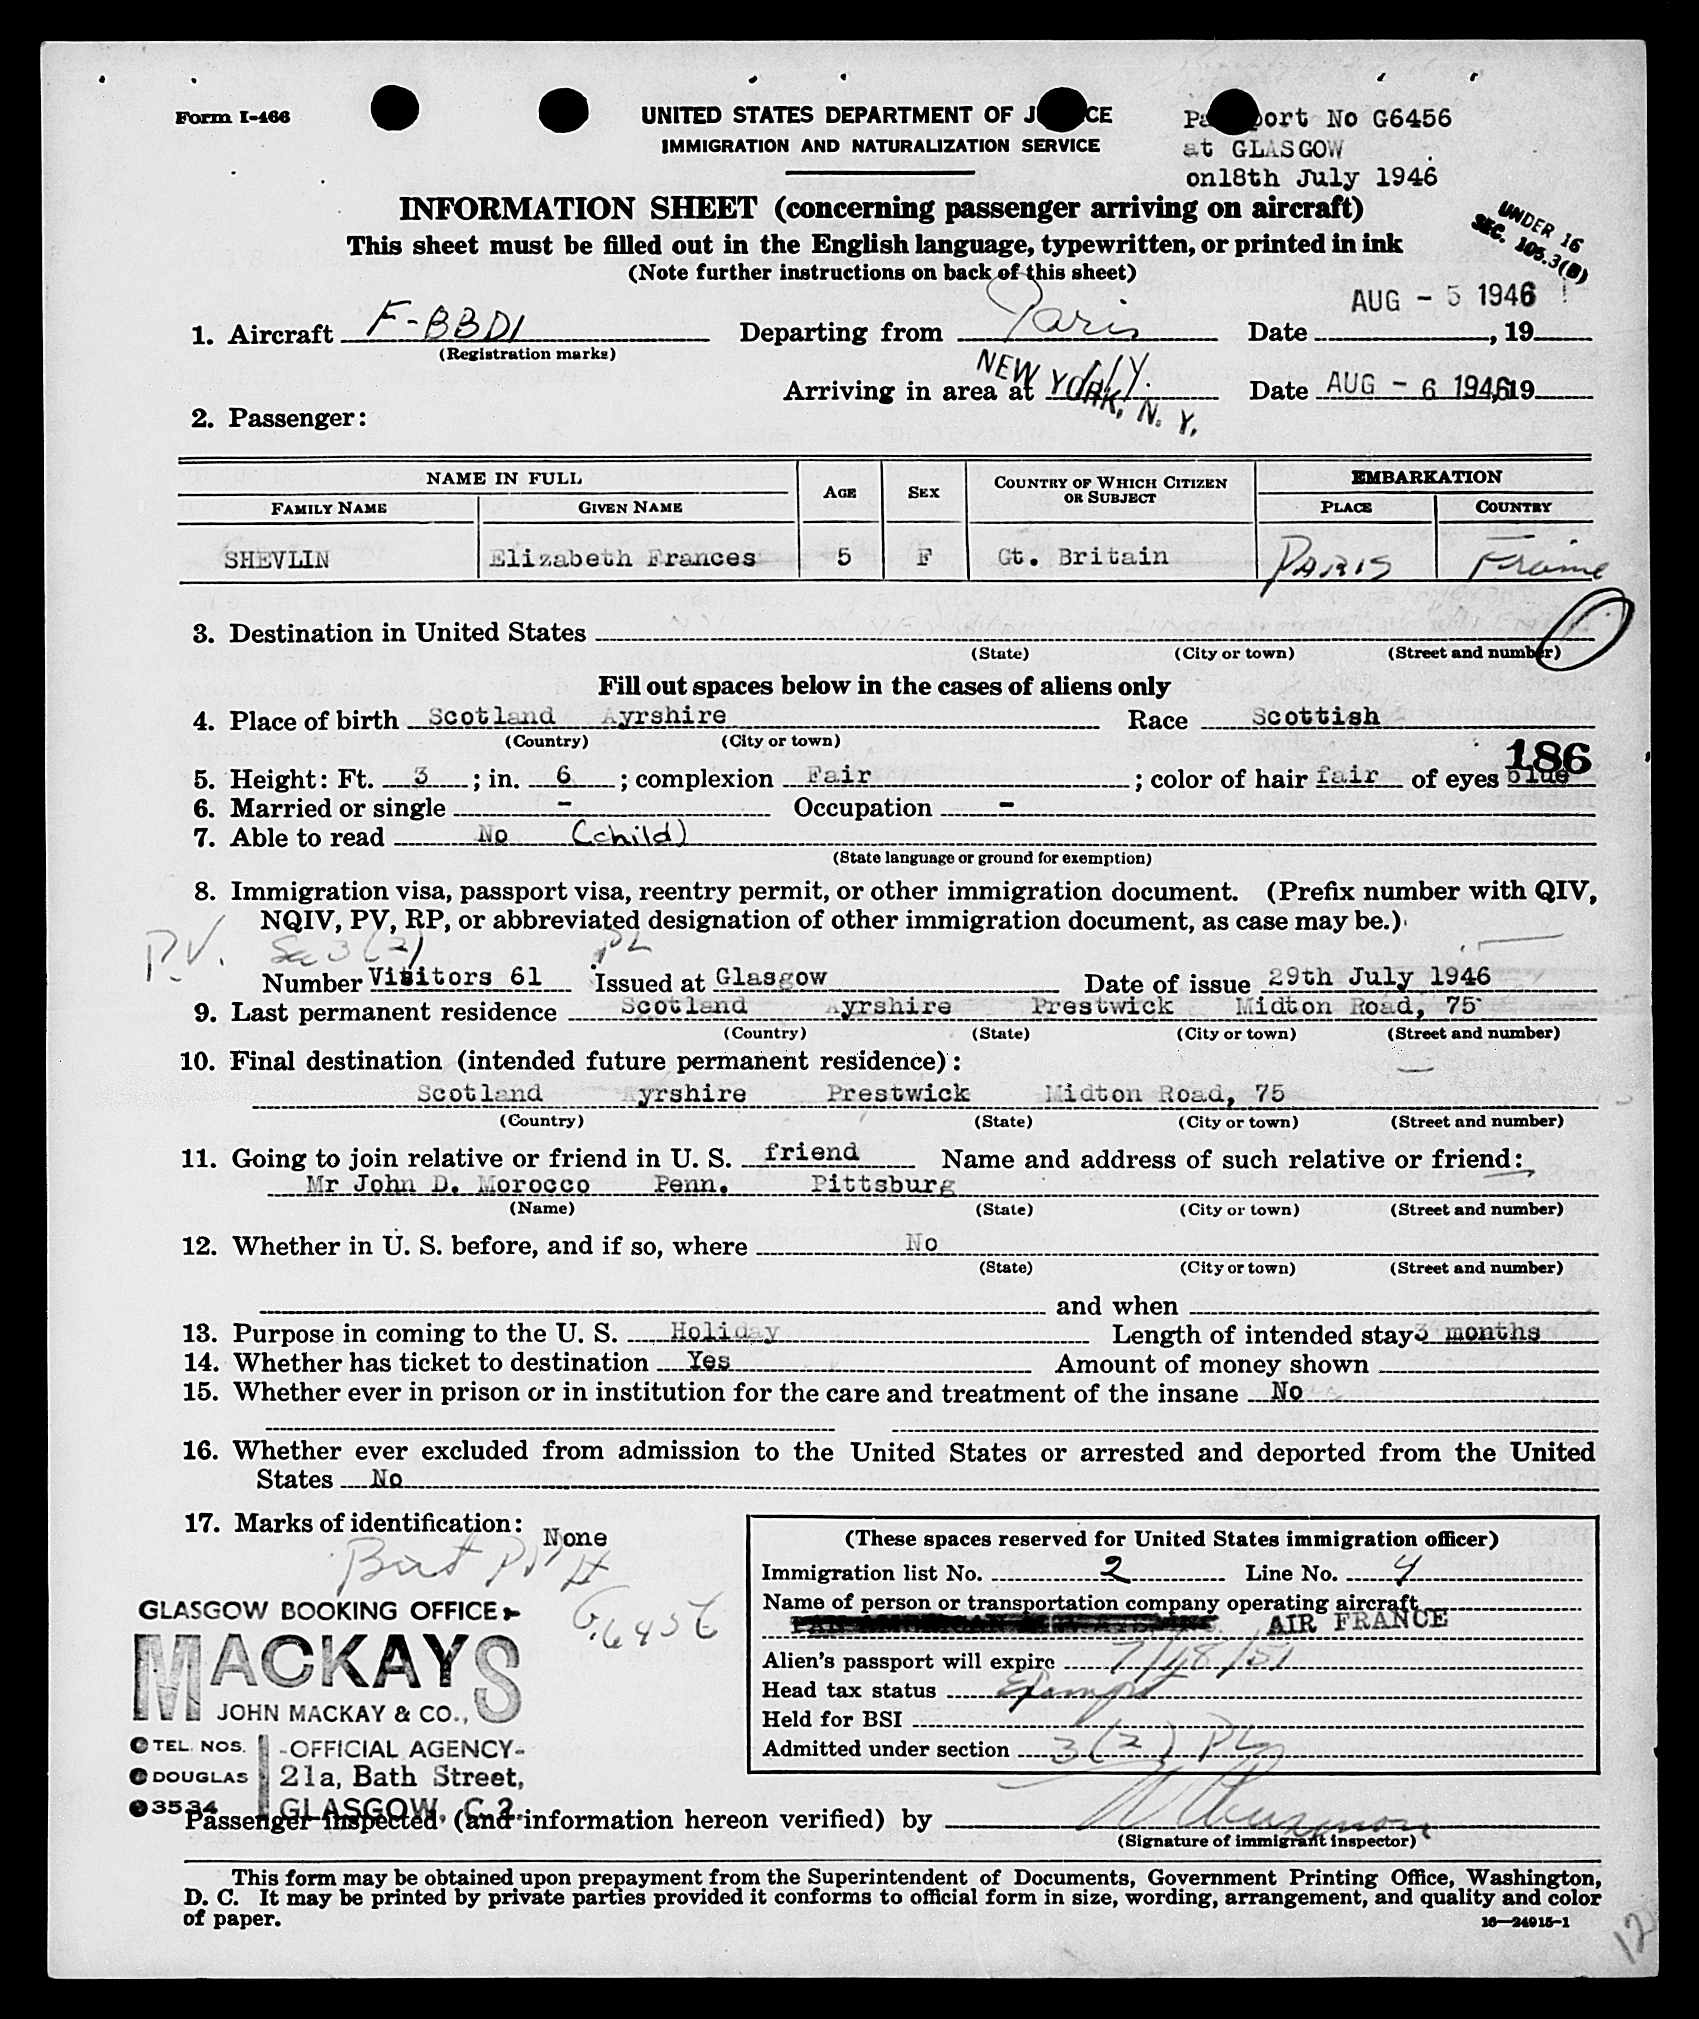 Form I-466
UNITED STATES DEPARTMENT OF J CE
IMMIGRATION AND NATURALIZATION SERVICE
Pa port No G6456
at GLASGOW
on18th July 1946
INFORMATION SHEET (concerning passenger arriving on aircraft)
UNDER 16
SEC. 105.3(B)
This sheet must be filled out in the English language, typewritten, or printed in ink
(Note further instructions on back of this sheet)
1. Aircraft F-BBDI Departing from Paris Date AUG - 5 1946, 19
(Registration marks)
Arriving in area at N.Y. NEW YORK, N. Y. Date AUG - 6 1946, 19
2. Passenger:
NAME IN FULL AGE SEX COUNTRY OF WHICH CITIZEN OR SUBJECT EMBARKATION
FAMILY NAME GIVEN NAME PLACE COUNTRY
SHEVLIN Elizabeth Frances 5 F Gt. Britain PARIS France
3. Destination in United States
(State) (City or town) (Street and number)
Fill out spaces below in the cases of aliens only
4. Place of birth Scotland Ayrshire Race Scottish
(Country) (City or town)
186
5. Height: Ft. 3; in. 6; complexion Fair; color of hair fair of eyes blue
6. Married or single - Occupation -
7. Able to read No (child)
(State language or ground for exemption)
8. Immigration visa, passport visa, reentry permit, or other immigration document. (Prefix number with QIV,
NQIV, PV, RP, or abbreviated designation of other immigration document, as case may be.)
P.V. Sec 3(2) PL
Number Visitors 61 Issued at Glasgow Date of issue 29th July 1946
9. Last permanent residence Scotland Ayrshire Prestwick Midton Road, 75
(Country) (State) (City or town) (Street and number)
10. Final destination (intended future permanent residence):
Scotland Ayrshire Prestwick Midton Road, 75
(Country) (State) (City or town) (Street and number)
11. Going to join relative or friend in U. S. friend Name and address of such relative or friend:
Mr John D. Morocco Penn. Pittsburg
(Name) (State) (City or town) (Street and number)
12. Whether in U. S. before, and if so, where No
(State) (City or town) (Street and number)
and when
13. Purpose in coming to the U. S. Holiday Length of intended stay 3 months
14. Whether has ticket to destination Yes Amount of money shown
15. Whether ever in prison or in institution for the care and treatment of the insane No
16. Whether ever excluded from admission to the United States or arrested and deported from the United
States No
17. Marks of identification: None
Brit PPt #
G.6456
GLASGOW BOOKING OFFICE
MACKAYS
JOHN MACKAY & CO.,
TEL. NOS. -OFFICIAL AGENCY-
DOUGLAS 21a, Bath Street,
3534 GLASGOW, C.2.
(These spaces reserved for United States immigration officer)
Immigration list No. 2 Line No. 4
Name of person or transportation company operating aircraft
AIR FRANCE
Alien's passport will expire 7/18/51
Head tax status Exempt
Held for BSI
Admitted under section 3(2) PL
Passenger inspected (and information hereon verified) by
(Signature of immigrant inspector)
This form may be obtained upon prepayment from the Superintendent of Documents, Government Printing Office, Washington,
D. C. It may be printed by private parties provided it conforms to official form in size, wording, arrangement, and quality and color
of paper.
16—24915-1
12